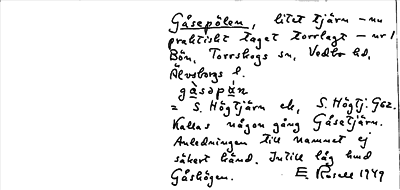 Gåsepölen, litet tjärn – nu
praktiskt taget torrlagt – nr 1
Bön, Torrskogs sn, Vedbo hd,
Älvsborgs l.
gå̀səpǻn
= S. Högtjärn ek, S. Högtj. Gez.
Kallas någon gång Gåsetjärn.
Anledningen till namnet ej
säkert känd. Intill låg hmd
Gåshögen. E. Rosell 1949